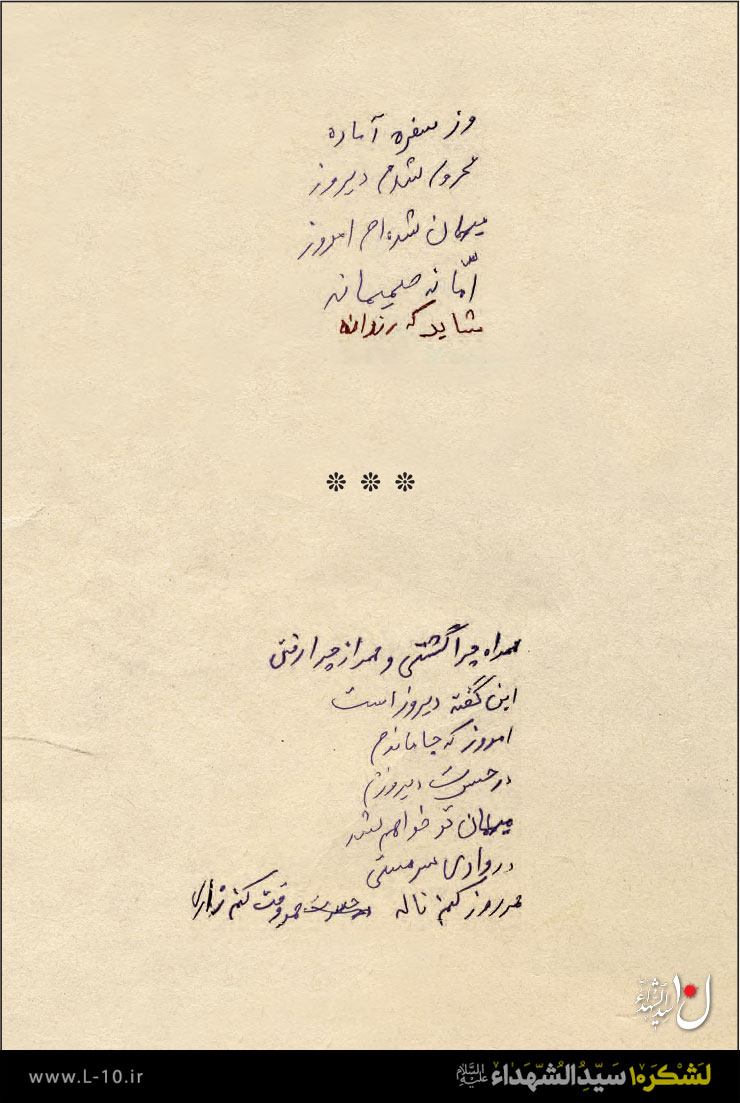 وز سفره آماده
محروم شدم دیروز
میهمان شده‌ام امروز
امّا نه صمیمانه
شاید که رندانه
همراه چرا گشتی و همراز چرا رفتی
این گفته دیروز است
امروز که جا ماندم
در حسرت دیروزم
میهمان تو خواهم شد
در وادی سرمستی
هر روز کنم ناله هر وقت کنم زاری
ن سیدالشهداء
www.L-10.ir
لَشْکَرِه۱۰ سَیِّدُالشُّهَداء عَلَیْهِ السَّلام